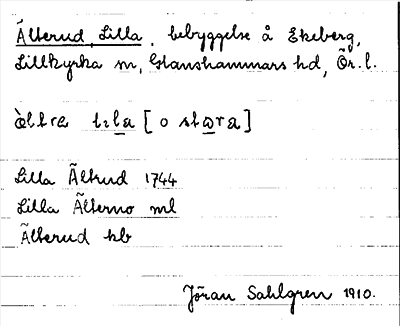 Älterud, Lilla, bebyggelse å Ekeberg,
Lillkyrka sn, Glanshammars hd, Ör. l.
lɩla [ o
Lilla Älterud 1744
Lilla Älterno ml
Älterud hb
Jöran Sahlgren 1910.